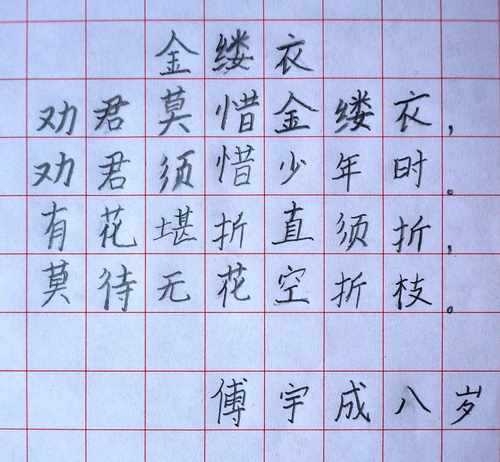 金缕衣
劝君莫惜金缕衣，
劝君须惜少年时。
有花堪折直须折，
莫待无花空折枝。
傅宇成八岁